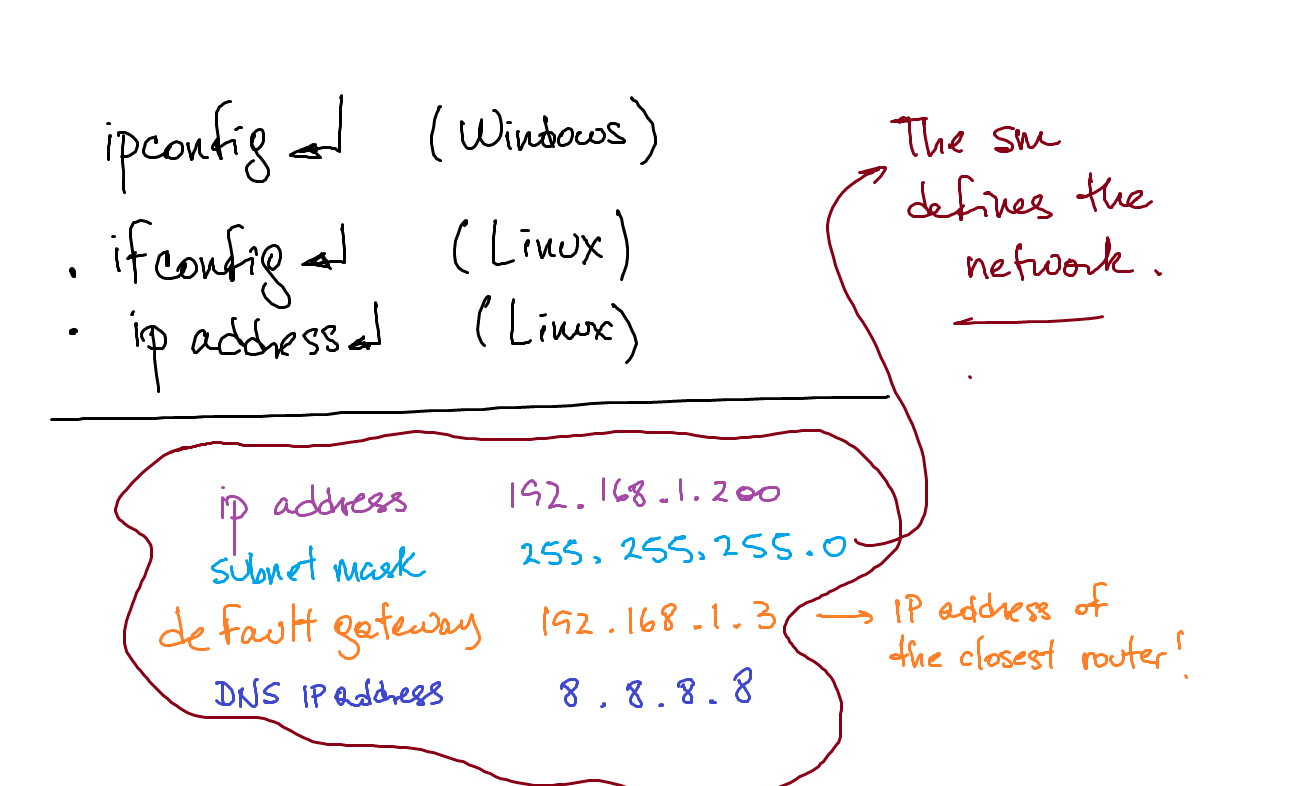 ipconfig ↵ (Windows)
. ifconfig ↵ (Linux)
. ip address ↵ (Linux)
The sm
defines the
network.
ip address 192.168.1.200
subnet mask 255.255.255.0
default gateway 192.168.1.3 → IP address of
the closest router!
DNS IP address 8.8.8.8